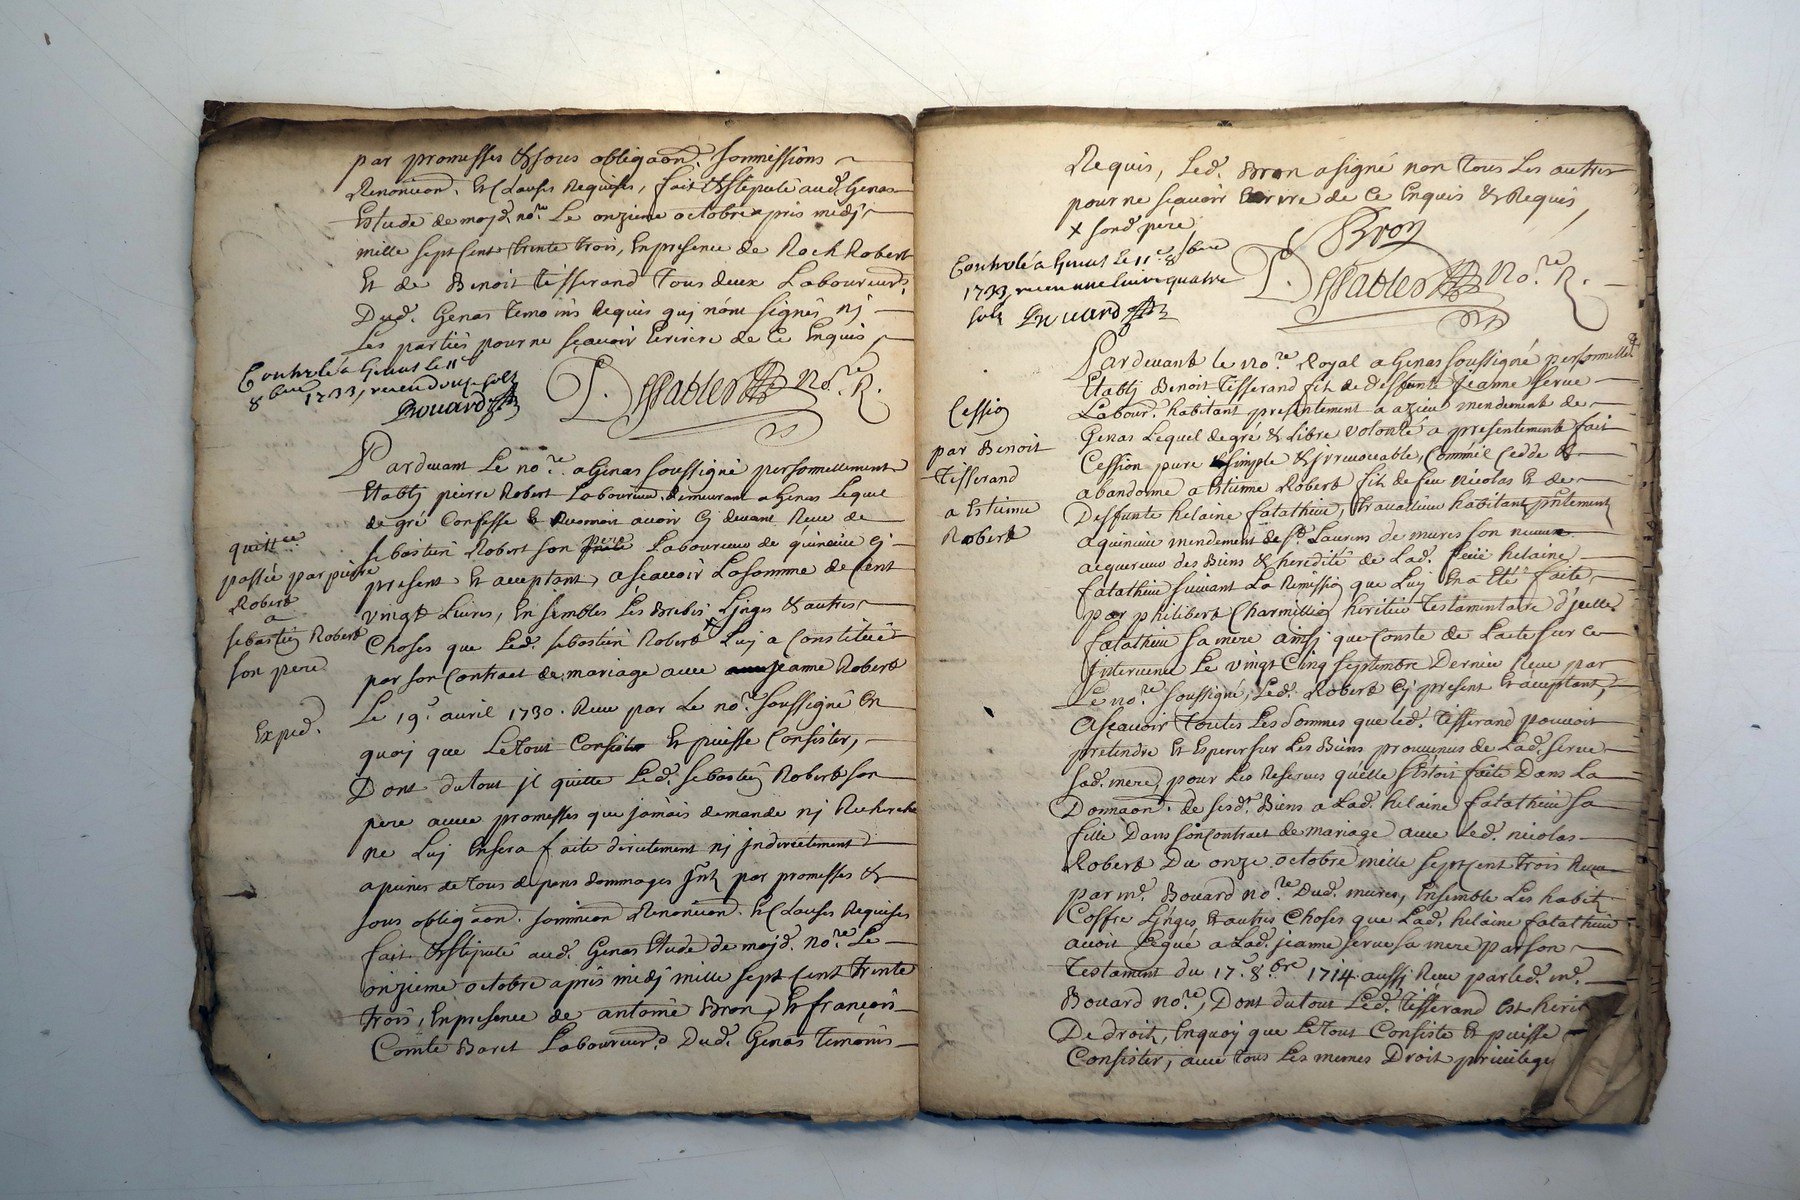 par promesses et sous obligaon. sommissions
Renonciaon. et Clauses Requises, fait et stipulé aud. Genas
Estude de mojd. nore. Le onzieme octobre apris midj
mille sept cent trente trois, En presence de Roch Robert
Et de Benoit Tisserand tous deux Laboureurs
Dud. Genas temoins Requis quj n'ont signés nj
Les parties pour ne sçavoir Ecrire de ce Enquis
Controlé a Genas le 11e
8bre 1733, receu douze sols
Bouard
P. Dessables nore. R.
Pardevant Le nore. a Genas soussigné personnellement
Etablj pierre Robert Laboureur demeurant a Genas Lequel
de gré Confesse Et Reconnoit avoir cj devant Receu de
sebastien Robert son pere Laboureur de quincieu cj
present Et acceptant, a sçavoir La somme de Cent
vingt Livres, Ensembles Les Brebis Linges et autres
Choses que Led. sebastien Robert x Luj a Constitué
par son Contract de mariage avec jeanne Robert
Le 19e. avril 1730. Receu par Le nore. soussigné En
quoj que Le tout Consiste Et puisse Consister,
Dont du tout jl quitte Led. sebastien Robert son
pere avec promesses que jamais demande nj Recherche
ne Luj En sera faite directement nj jndirectement
a peines de tous depens dommages Jnts par promesses et
sous obligaon. sommiceon Renonciaon. et Clauses Requises
fait et stipulé aud. Genas Etude de mojd. nore. Le
onzieme octobre apris midj mille sept cent trente
trois, En presence de antoine Bron, Et françois
Comte Baret Laboureurs Dud. Genas temoins
quittce
passée par pierre
Robert
a
sebastien Robert
son pere
Exped.
Requis, Led. Bron a signé non tous Les autres
pour ne sçavoir Ecrire de ce Enquis et Requis
x sond. père
Bron
Controlé a Genas le 11e 8bre
1733, receu une livre quatre
sols Bouard
P. Dessables nore. R.
Pardevant le nore. Royal a Genas soussigné personnellet
Etablj Benoit Tisserand fils de deffunte Jeanne Serve
Labour. habitant presentement a azieu mendement de
Genas Lequel de gré et Libre volonté a presentement fait
Cession pure et simple et jrrevocable, Comm'il Cedde et
abandonne a Estienne Robert fils de feu Nicolas Et de
Deffunte helaine fatatheue, travailleur habitant pntement
a quincieu mendement de st. Laurens de mures son neveu
acquereur des Biens et heredité de Lad. feüe helaine
fatatheue suivant La Remission que Luj En a Eté faite
par philibert Charmillion heritier testamentaire d'jcelle
fatatheue sa mere ainsj que Conste de L'acte sur ce
jntervenu Le vingt Cinq septembre Dernier Receu par
Le nore. soussigné, Led. Robert Cj present Et acceptant,
Asçavoir toutes Les sommes que led. Tisserand pouvoit
pretendre Et Esperer sur Les Biens provenus de Lad. Serve
sad. mere, pour Les Reserves qu'elle s'Estoit faite Dans La
Donnaon. de sesd. Biens a Lad. helaine fatatheue sa
fille Dans son Contract de mariage avec Led. nicolas
Robert Du onze octobre mille sept cent trois Receu
par me. Bouard nore. Dud. mures, Ensemble Les habit
Coffre Linges Et autres Choses que Lad. helaine fatatheue
avoit Legué a Lad. jeanne Serve sa mere par son
Testament du 17e. 8bre 1714. aussj Receu par led. me.
Bouard nore., Dont du tout Led. Tisserand Est herit
De droit, En quoj que Le tout Consiste Et puisse
Consister, avec tous Les mesmes Droit privilege
Cession
par Benoit
Tisserand
a Estienne
Robert